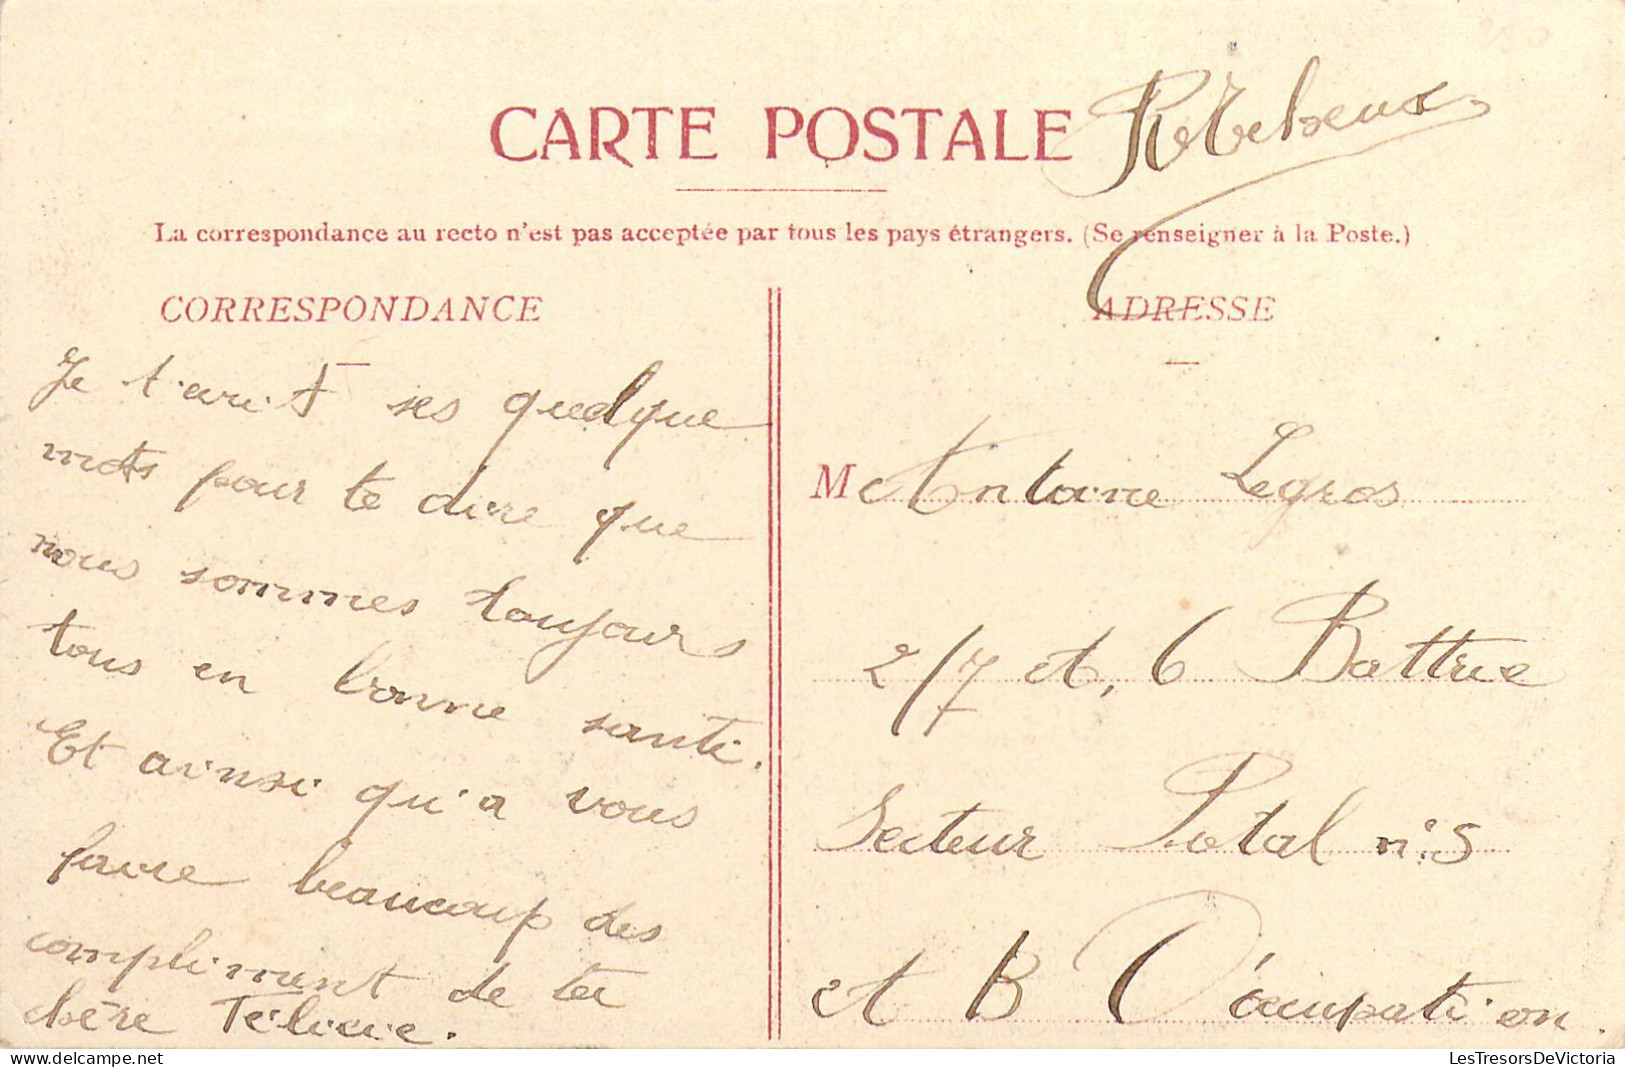 CARTE POSTALE
La correspondance au recto n'est pas acceptée par tous les pays étrangers. (Se renseigner à la Poste.)
CORRESPONDANCE
Je t'ecrit ses quelque
mots pour te dire que
nous sommes toujours
tous en bonne santé.
Et ainsi qu'a vous
faire beaucoup des
compliment de ta
chère Félicie.
ADRESSE
M Antoine Legros
2/7 et, 6 Battrie
Secteur Potal n:5
et B D'ocupation.
LesTresorsDeVictoria